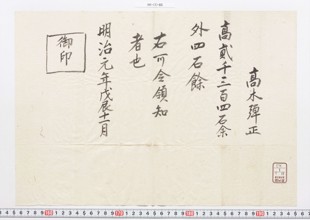 高木弾正
高貳千三百四石余
外四石餘
右可令領知
者也
明治元年戊辰十二月
御印